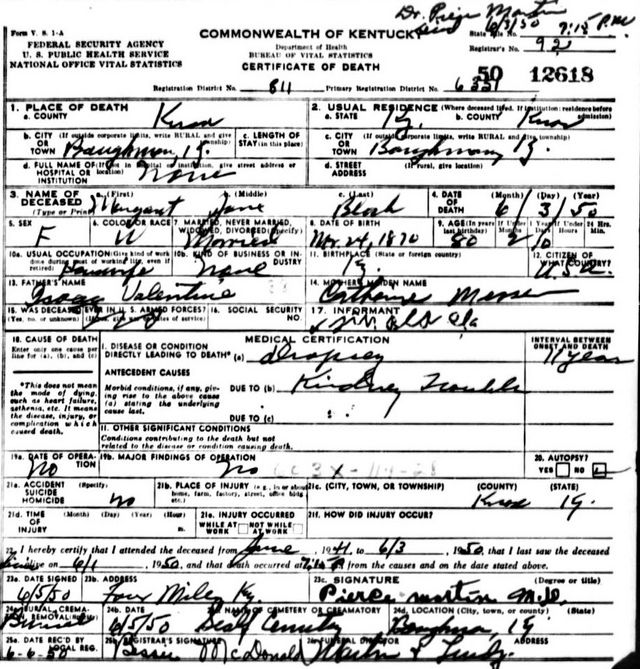 Dr. Pierce Martin
6/3/50 7:15 P.M
Form V. S. 1-A
COMMONWEALTH OF KENTUCKY
State File No.
FEDERAL SECURITY AGENCY
Department of Health
Registrar's No. 92
U. S. PUBLIC HEALTH SERVICE
BUREAU OF VITAL STATISTICS
NATIONAL OFFICE VITAL STATISTICS
CERTIFICATE OF DEATH
50 12618
Registration District No. 811 Primary Registration District No.
1. PLACE OF DEATH
a. COUNTY Knox
2. USUAL RESIDENCE (Where deceased lived. If institution: residence before admission)
a. STATE Ky. b. COUNTY Knox
b. CITY (If outside corporate limits, write RURAL and give township)
OR TOWN Baughman, Ky.
c. LENGTH OF STAY (in this place)
c. CITY (If outside corporate limits, write RURAL and give township)
OR TOWN Baughman, Ky.
d. FULL NAME OF (If not in hospital or institution, give street address or location)
HOSPITAL OR INSTITUTION None
d. STREET ADDRESS (If rural, give location)
3. NAME OF DECEASED (Type or Print)
a. (First) Margaret b. (Middle) Jane c. (Last)
4. DATE OF DEATH (Month) (Day) (Year) 6/3/50
5. SEX F
6. COLOR OR RACE W
7. MARRIED, NEVER MARRIED, WIDOWED, DIVORCED (Specify) Married
8. DATE OF BIRTH Mar. 24, 1870
9. AGE (In years last birthday) 80 If Under 1 Year 2 If Under 24 Hrs. Hrs. Min.
10a. USUAL OCCUPATION (Give kind of work done during most of working life, even if retired) Housewife
10b. KIND OF BUSINESS OR INDUSTRY None
11. BIRTHPLACE (State or foreign country) Ky.
12. CITIZEN OF WHAT COUNTRY? U.S.A.
13. FATHER'S NAME Isaac Valentine
14. MOTHER'S MAIDEN NAME Catherine Messer
15. WAS DECEASED EVER IN U. S. ARMED FORCES?
(Yes, no, or unknown) (If yes, give war or dates of service)
16. SOCIAL SECURITY NO.
17. INFORMANT
18. CAUSE OF DEATH
Enter only one cause per line for (a), (b), and (c)
MEDICAL CERTIFICATION
INTERVAL BETWEEN ONSET AND DEATH
I. DISEASE OR CONDITION DIRECTLY LEADING TO DEATH* (a) Dropsy
1 year
*This does not mean the mode of dying, such as heart failure, asthenia, etc. It means the disease, injury, or complication which caused death.
ANTECEDENT CAUSES
Morbid conditions, if any, giving rise to the above cause (a) stating the underlying cause last.
DUE TO (b) Kidney Trouble
DUE TO (c)
II. OTHER SIGNIFICANT CONDITIONS
Conditions contributing to the death but not related to the disease or condition causing death.
19a. DATE OF OPERATION No
19b. MAJOR FINDINGS OF OPERATION No
20. AUTOPSY? YES NO
21a. ACCIDENT SUICIDE HOMICIDE (Specify) no
21b. PLACE OF INJURY (e.g., in or about home, farm, factory, street, office bldg., etc.)
21c. (CITY, TOWN, OR TOWNSHIP) (COUNTY) (STATE)
Knox Ky.
21d. TIME OF INJURY (Month) (Day) (Year) (Hour) m.
21e. INJURY OCCURRED
WHILE AT WORK NOT WHILE AT WORK
21f. HOW DID INJURY OCCUR?
22. I hereby certify that I attended the deceased from June, 1941, to 6/3, 1950, that I last saw the deceased
alive on 6/1 1950, and that death occurred at from the causes and on the date stated above.
23a. DATE SIGNED 6/5/50
23b. ADDRESS Four Mile, Ky.
23c. SIGNATURE (Degree or title)
Pierce Martin M.D.
24a. BURIAL, CREMATION, REMOVAL (Specify) Burial
24b. DATE 6/5/50
24c. NAME OF CEMETERY OR CREMATORY Cemetery
24d. LOCATION (City, town, or county) (State) Baughman, Ky.
25a. DATE REC'D BY LOCAL REG. 6-6-50
25b. REGISTRAR'S SIGNATURE Bessie McDonald
26. FUNERAL DIRECTOR ADDRESS